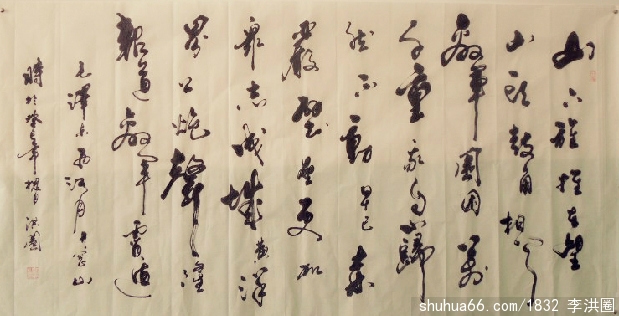 山下旌旗在望
山头鼓角相闻
敌军围困万
千重我自岿
然不动早已森
严壁垒更加
众志成城黄洋
界上炮声隆
报道敌军宵遁
毛泽东西江月井冈山
时于癸巳年
洪圈
shuhua66.com/1832 李洪圈